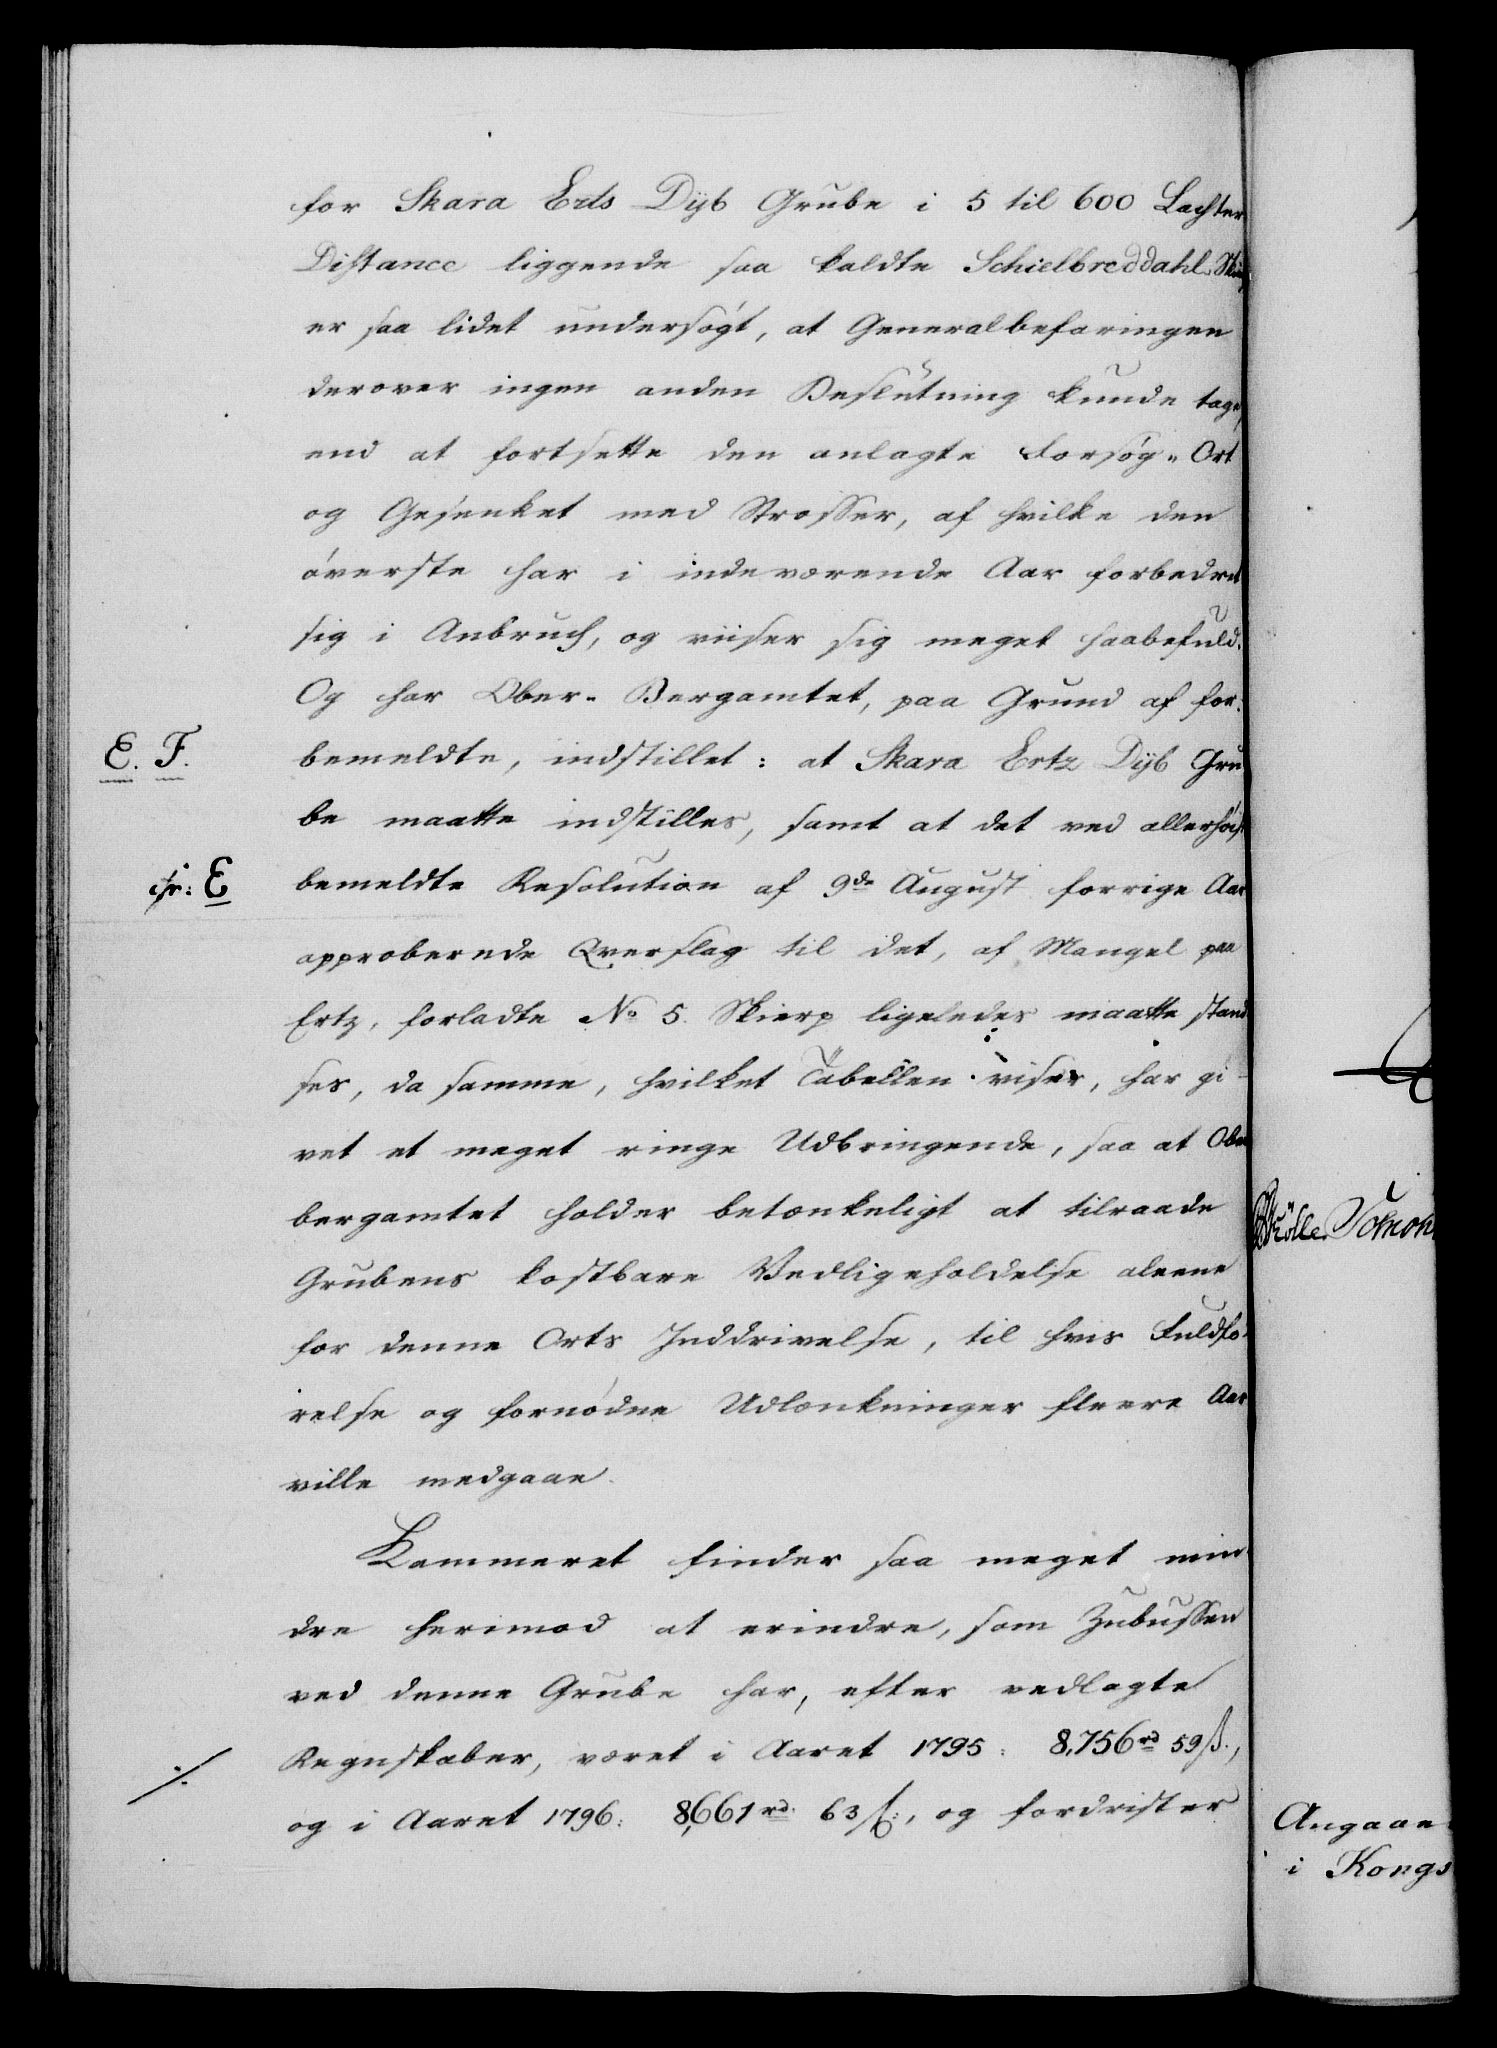 for Skara Erts Dyb Grube i 5 til 600 Lachter
Distance liggende saa kaldte Schielbreddahl-
er saa lidet undersøgt, at Generalbefaringen
derover ingen anden Beslutning kunde tage,
end at fortsette den anlagte Forsøg-Ort
og Gesenket med Strosser, af hvilke den
øverste har i indeværende Aar forbedret
sig i Anbruch, og viiser sig meget haabefuld.
Og har Ober-Bergamtet, paa Grund af for-
E. F.
bemeldte, indstillet: at Skara Ertz Dyb Gru
be maatte indstilles, samt at det ved allerhøist
cfr: E
bemeldte Resolution af 9de August forrige Aar
approberede Qverslag til det, af Mangel paa
Ertz, forladte No 5. Skierp ligeledes maatte stand
ses, da samme, hvilket Tabellen viser, har gi-
vet et meget ringe Udbringende, saa at Ober
bergamtet holder betænkeligt at tilraade
Grubens kostbare Vedligeholdelse aleene
for denne Orts Inddrivelse, til hvis Fuldfø-
relse og fornødne Udlænkninger fleere Aar
ville medgaae.
Kammeret finder saa meget min-
dre herimod at erindre, som Zubussen
ved denne Grube har, efter vedlagte
Regnskaber, været i Aaret 1795: 8,756 rd 59 ß.,
⁒
og i Aaret 1796: 8,661 rd. 63 ß:, og fordrister
Angaae
i Kongs